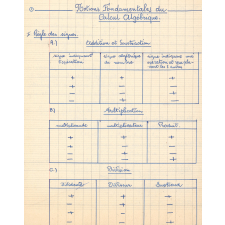 ① Notions Fondamentales du
Calcul Algébrique.
§ Règle des signes.
A.) Addition et Soustraction
signe indiquant l'opération | signe algébrique du nombre | signe indiquant une
+ + +
+ - -
- + -
- - +
B.) Multiplication
multiplicande multiplicateur Produit
+ + +
- + -
+ - -
- - +
C.) Division
Dividende Diviseur Quotient
+ + +
- + -
+ - -
- - +